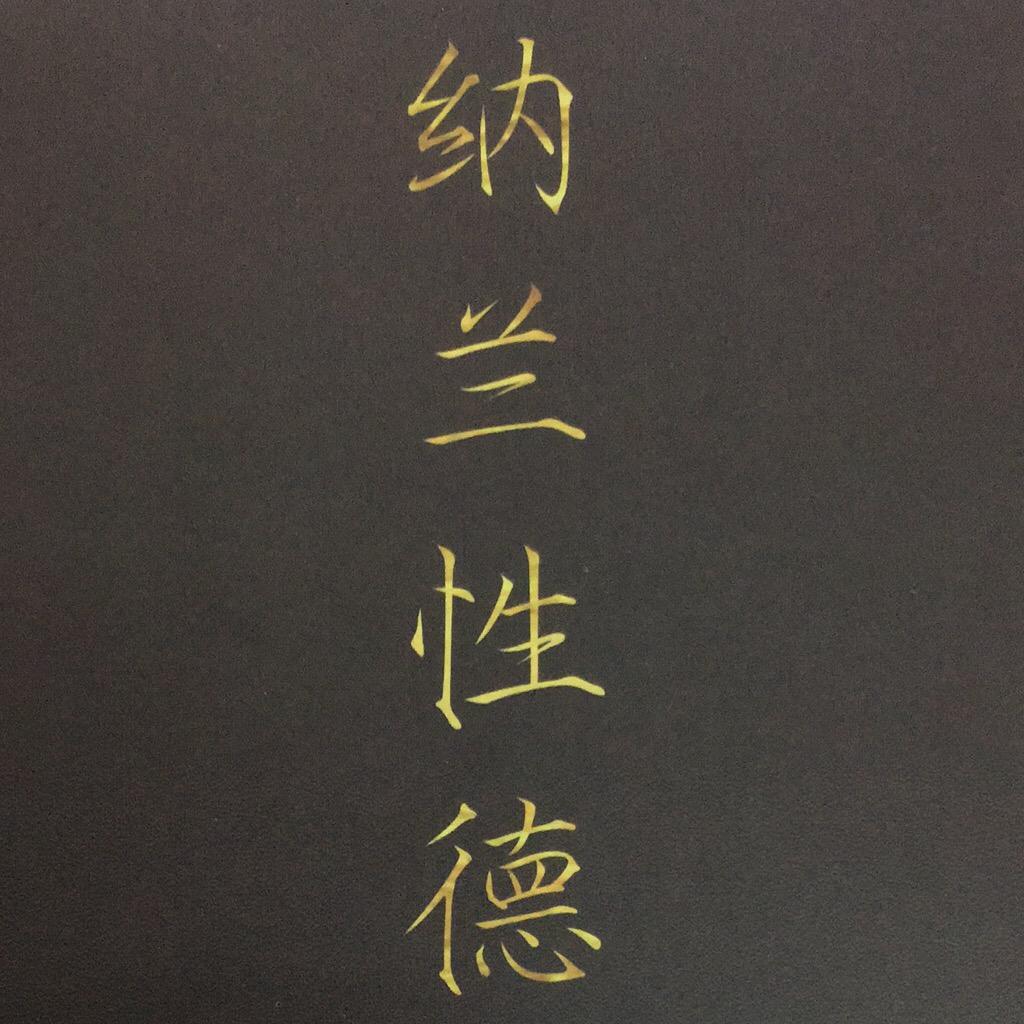 纳兰性德